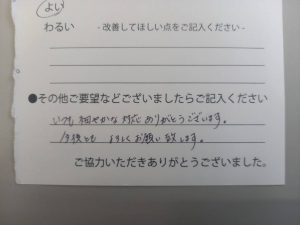 よい
わるい - 改善してほしい点をご記入ください -
●その他ご要望などございましたらご記入ください
いつも細やかな対応ありがとうございます。
今後とも よろしくお願い致します。
ご協力いただきありがとうございました。